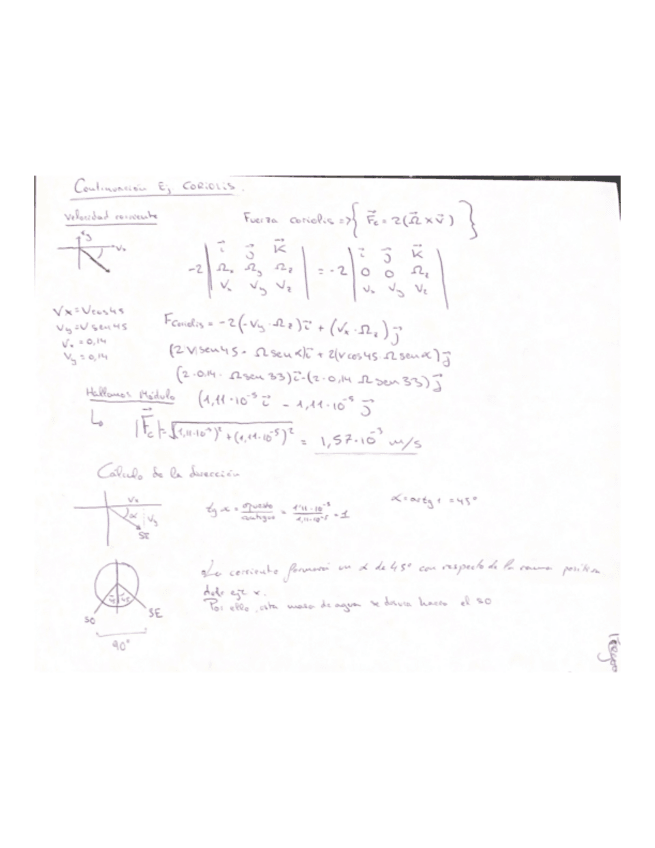 Continuación Ej CORIOLIS.
Velocidad corriente
Fuerza coriolis => { F⃗c = 2(Ω⃗ x v⃗) }
y
Vx
-2 | i⃗ j⃗ k⃗ | = -2 | i⃗ j⃗ k⃗ |
Ωx Ωy Ωz 0 0 Ωz
Vx Vy Vz Vx Vy Vz
Vx = V cos 45
Vy = V sen 45
Vx = 0,14
Vy = 0,14
Fcoriolis = -2(-Vy · Ωz) i⃗ + (Vx · Ωz) j⃗
(2 V sen 45 · Ω sen α) i⃗ + 2(V cos 45 Ω sen α) j⃗
(2 · 0.14 · Ω sen 33) i⃗ - (2 · 0,14 Ω sen 33) j⃗
Hallamos Módulo
(1,11·10⁻⁵ i⃗ - 1,11·10⁻⁵ j⃗
|F⃗c| = √(1,11·10⁻⁵)² + (1,11·10⁻⁵)² = 1,57·10⁻⁵ m/s
Cálculo de la dirección
Vx
α
Vy
SE
tg α = opuesto / contiguo = 1'11·10⁻⁵ / 1,11·10⁻⁵ = 1
α = arctg 1 = 45°
La corriente formará un α de 45° con respecto de la rama positiva
del eje x.
Por ello, esta masa de agua se desvía hacia el SO
45 45
SO
SE
90°